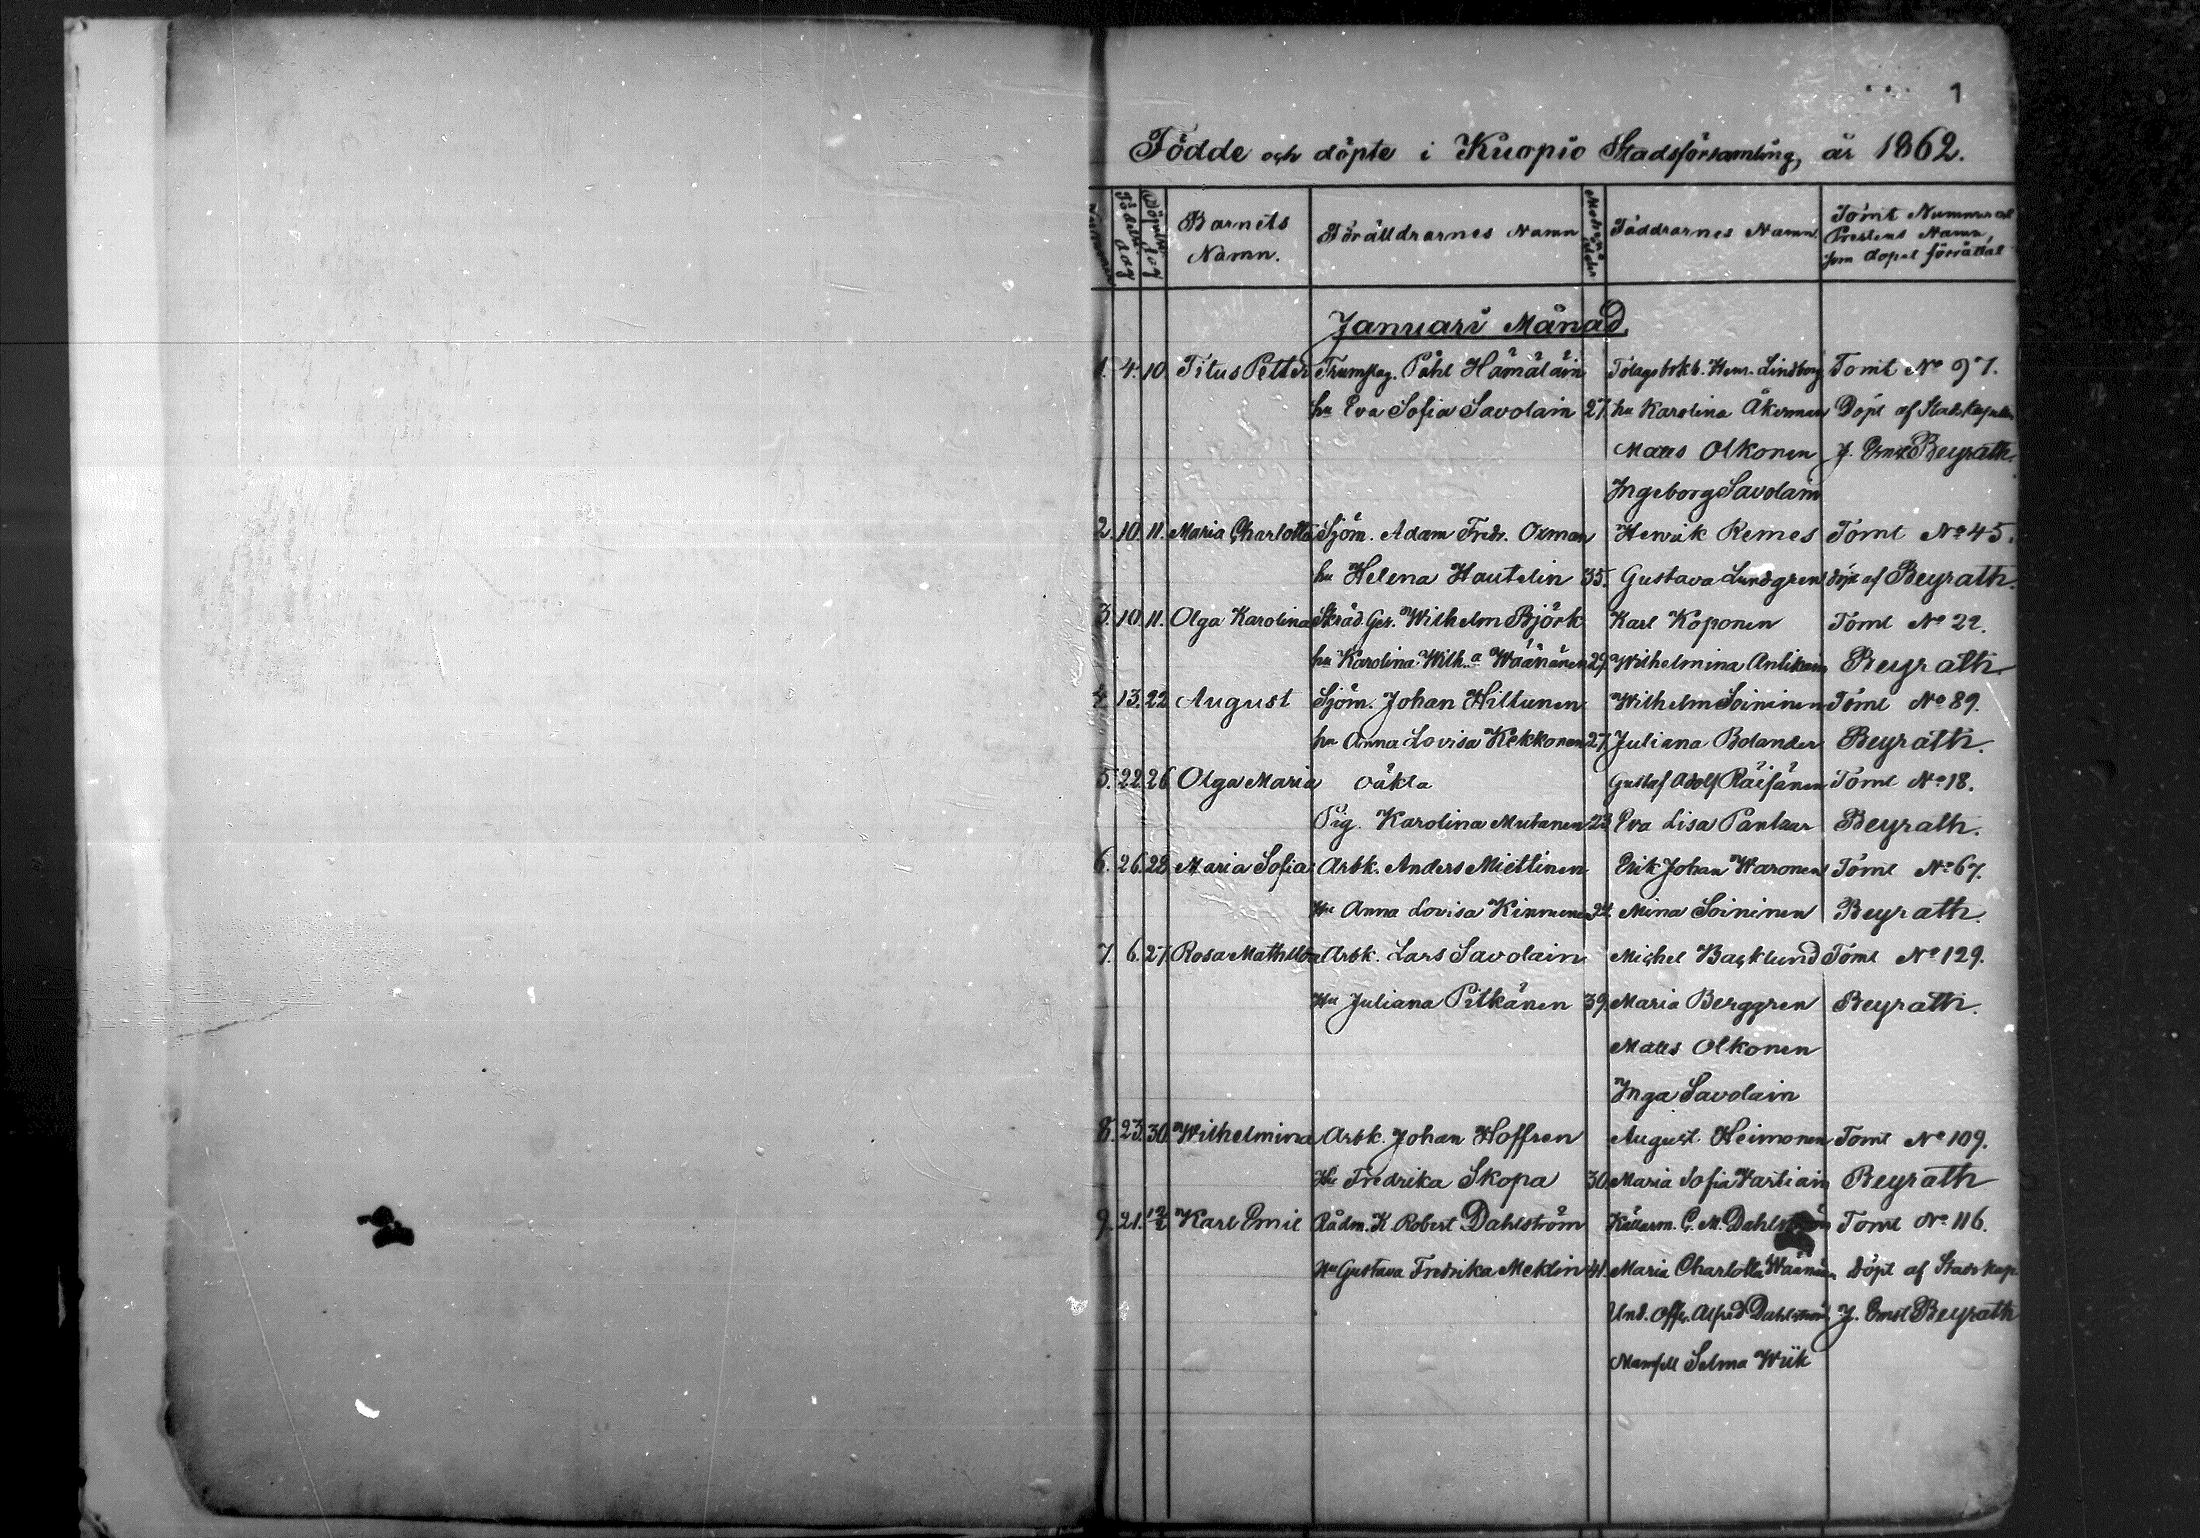 1
Födde och döpte i Kuopio Stadsförsamling, år 1862.
Födelse dag
Döpelse dag
Barnets Namn.
Föräldrarnes Namn
Moderns ålder
Faddrarnes Namn
Tomt Nummer och Prestens Namn, som dopet förrättat
Januari Månad
1. 4. 10. Titus Petter Trumslag. Påhl Hämäläin Tolagsbokh. Henr. Lindborg Tomt No 97.
hu Eva Sofia Savolain 27. hu Karolina Åkerman Döpt af Stadskapellan
Matts Olkonen J. Ernst Beyrath.
Ingeborg Savolain
2. 10. 11. Maria Charlotta Sjöm. Adam Fredr. Oxman Henrik Remes Tomt No 45.
hu Helena Hautelin 35. Gustava Lundgren döpt af Beyrath.
3. 10. 11. Olga Karolina Skräd. Ges. Wilhelm Björk Karl Koponen Tomt No 22.
hu Karolina Wilh.a Wäänänen 29. Wilhelmina Antikain Beyrath.
4. 13. 22 August Sjöm. Johan Hiltunen Wilhelm Soininen Tomt No 89.
hu Anna Lovisa Kekkonen 27. Juliana Bolander Beyrath.
5. 22. 26. Olga Maria oäkta Gustaf Adolf Räisänen Tomt No 18.
Pig. Karolina Mutanen 23. Eva Lisa Pantzar Beyrath.
6. 26. 28 Maria Sofia Arbk. Anders Miettinen Erik Johan Waronen Tomt No 67.
Hu Anna Lovisa Kinnunen 34. Mina Soininen Beyrath.
7. 6. 27. Rosa Mathilda Arbk. Lars Savolain Michel Backlund Tomt No 129.
Hu Juliana Pitkänen 39. Maria Berggren Beyrath.
Matts Olkonen
Inga Savolain
8. 23. 30. Wilhelmina Arbk. Johan Hoffren August Heimonen Tomt No 109.
Hu Fredrika Skopa 30. Maria Sofia Wartiain Beyrath
9. 21. 12/2 Karl Emil Rådm. K. Robert Dahlström Källarm. C. M. Dahlström Tomt No 116.
Hu Gustava Fredrika Meklin 41. Maria Charlotta Wäänänen Döpt af Stadskap
Und. Offr. Alfred Dahlström J. Ernst Beyrath
Mamsell Selma Wiik